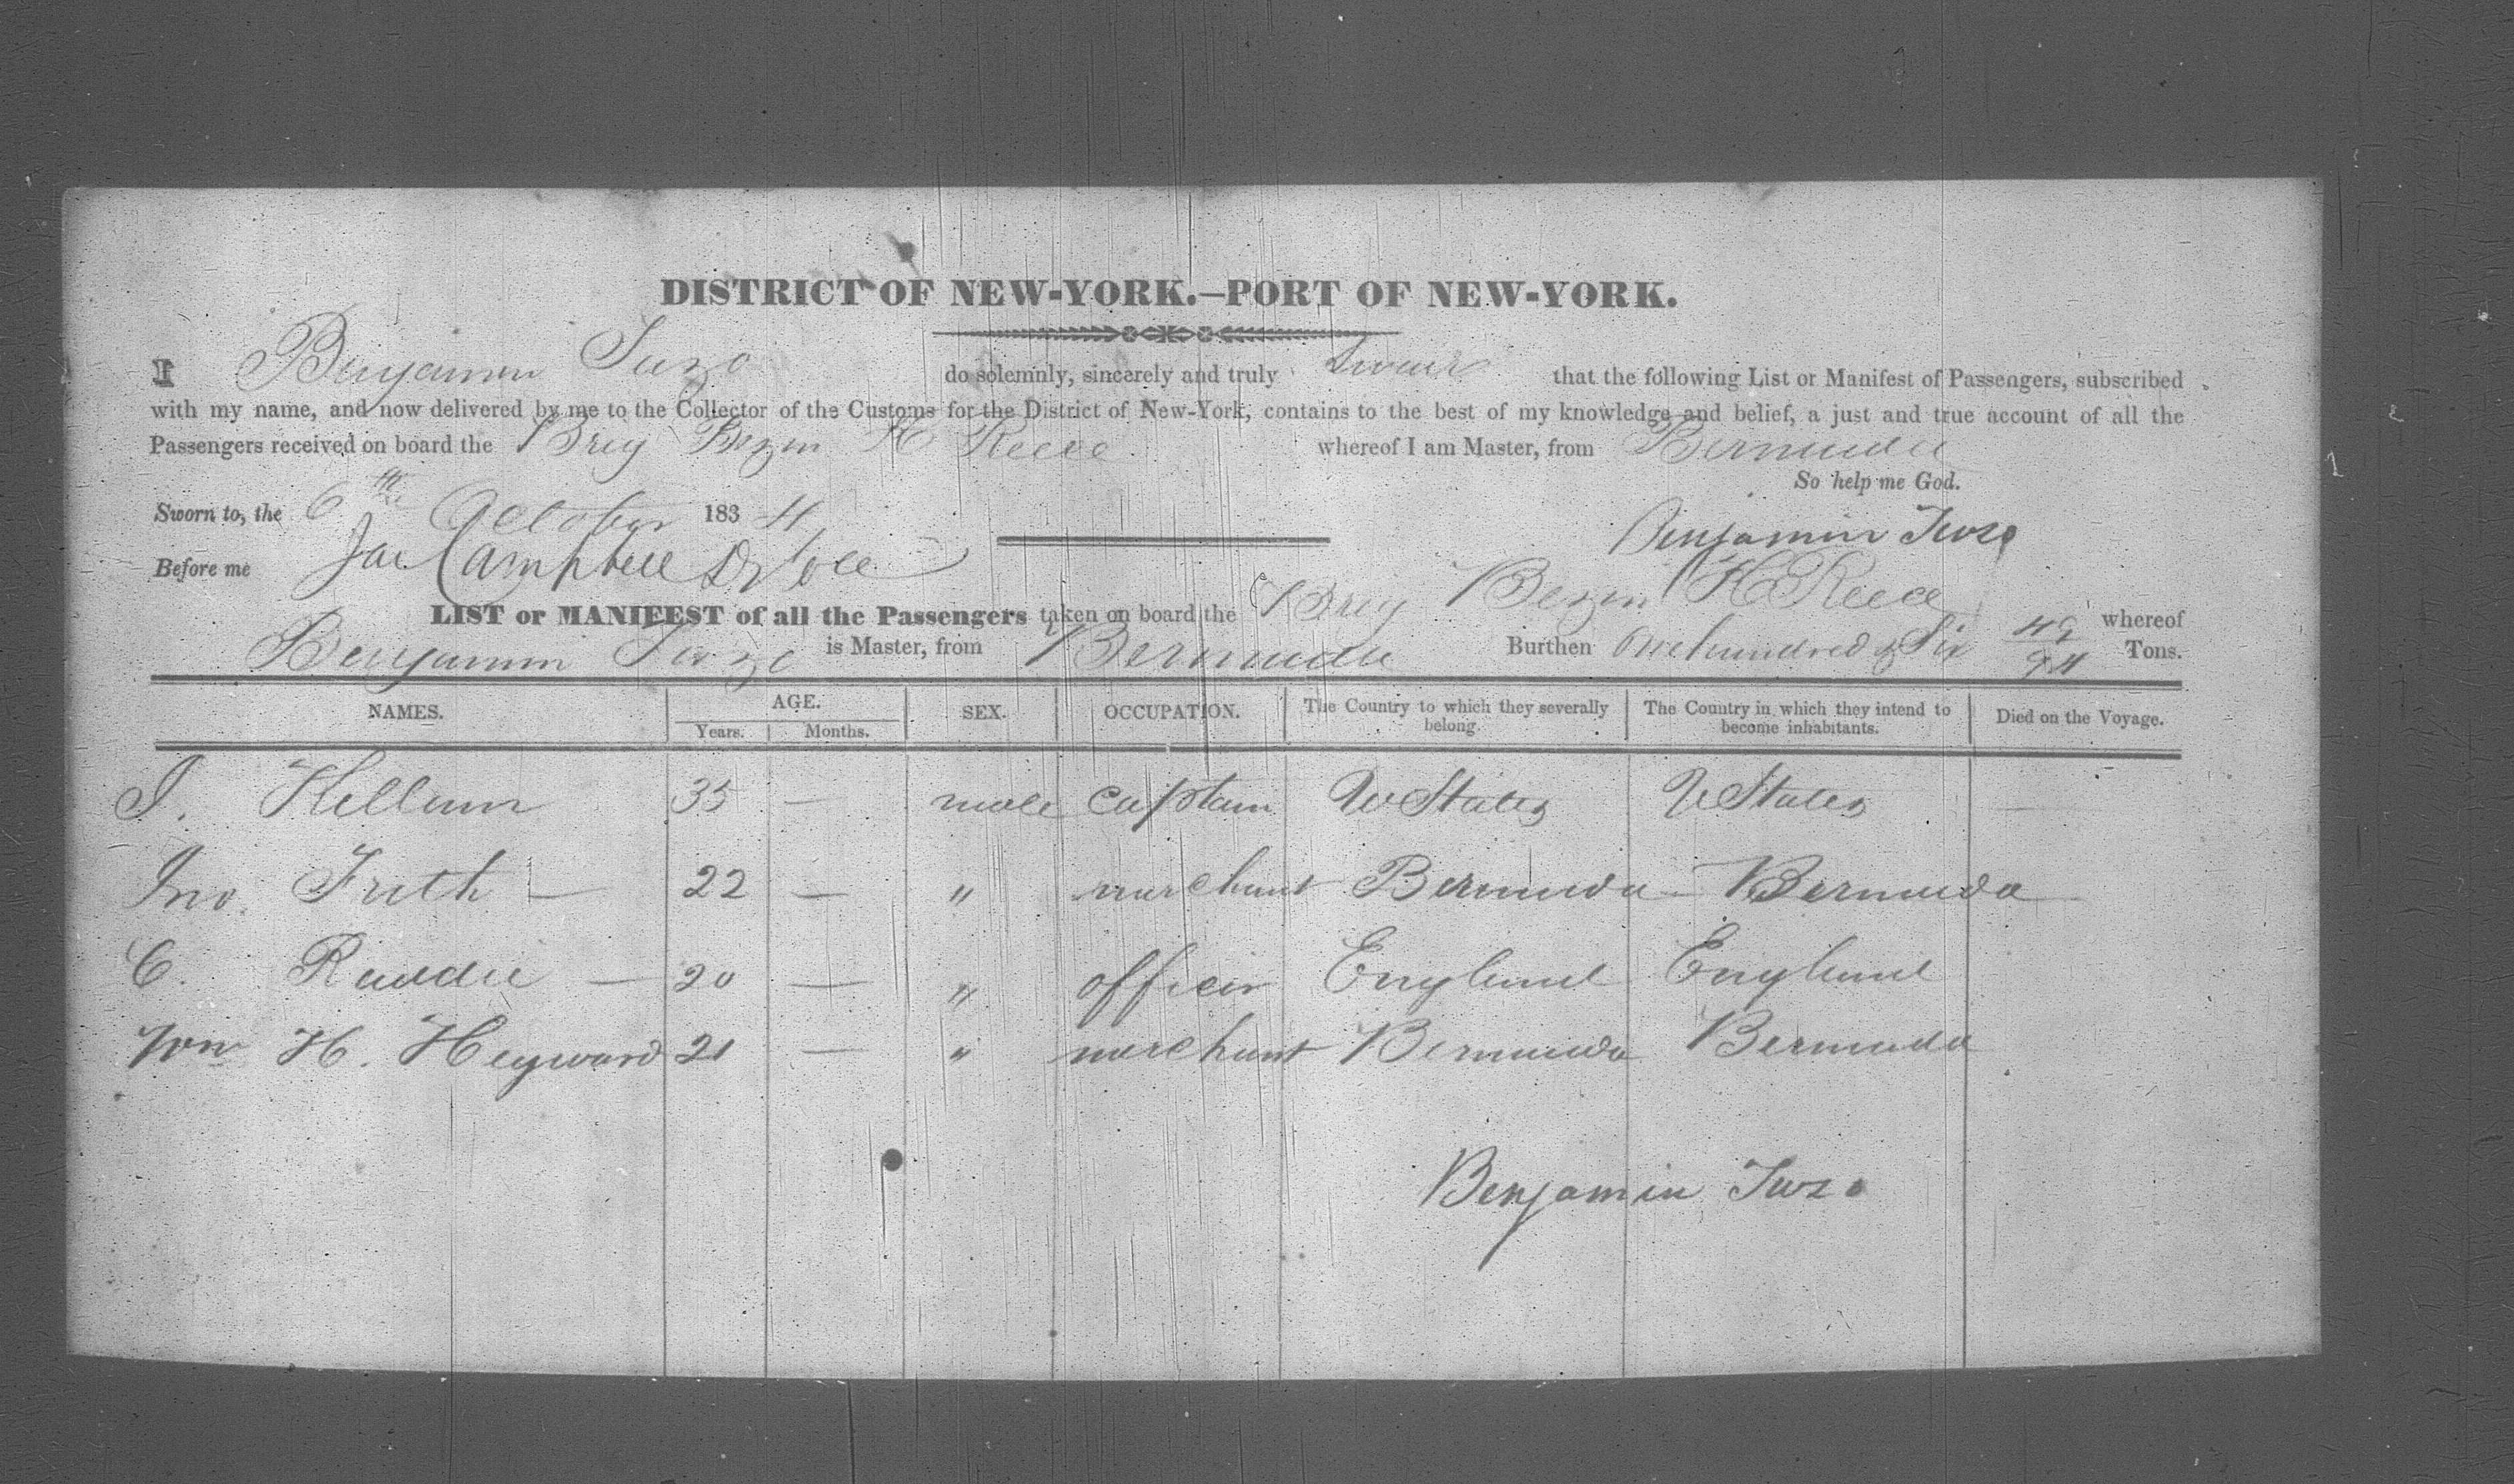 DISTRICT OF NEW-YORK.—PORT OF NEW-YORK.
I Benjamin Tuzo do solemnly, sincerely and truly swear that the following List or Manifest of Passengers, subscribed
with my name, and now delivered by me to the Collector of the Customs for the District of New-York, contains to the best of my knowledge and belief, a just and true account of all the
Passengers received on board the Brig Bezin H Reece whereof I am Master, from Bermuda
So help me God.
Sworn to, the 6th October 1834
Benjamin Tuzo
Before me Jas Campbell
LIST or MANIFEST of all the Passengers taken on board the Brig Bezin H Reece whereof
Benjamin Tuzo is Master, from Bermuda Burthen One hundred & Six Tons.
NAMES. AGE. SEX. OCCUPATION. The Country to which they severally belong. The Country in which they intend to become inhabitants. Died on the Voyage.
Years. Months.
J. Kellum 35 — male captain U States U States —
Jno. Frith — 22 — " merchant Bermuda — Bermuda —
C. — 20 — " officer England England
Wm H. Heyward 21 — " merchant Bermuda Bermuda
Benjamin Tuzo